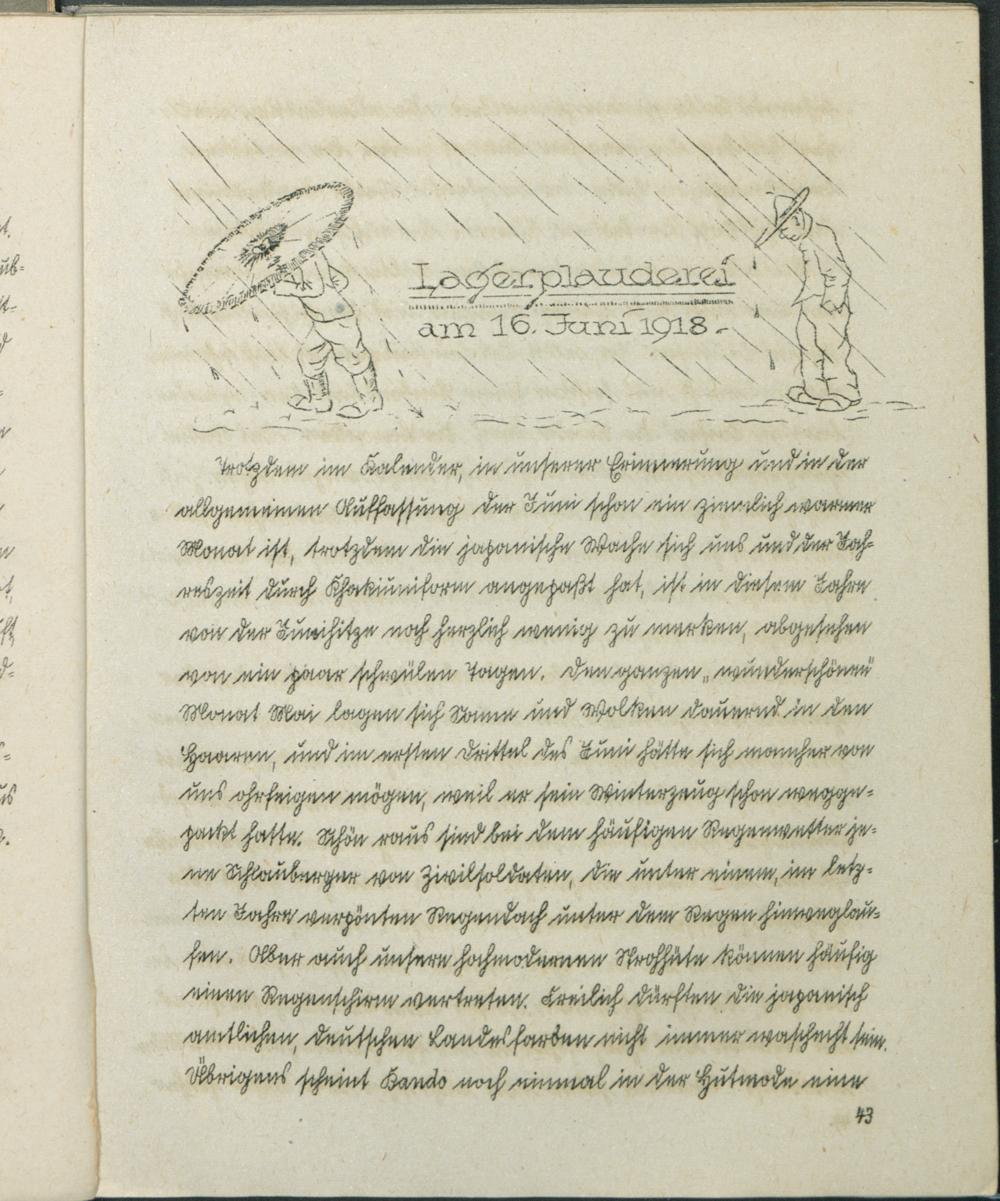 Lagerplauderei
am 16. Juni 1918.
Trotzdem im Kalender, in unserer Erinnerung und in der
allgemeinen Auffassung der Juni schon ein ziemlich warmer
Monat ist, trotzdem die japanische Wache sich uns und der Jah-
reszeit durch Khakiuniform angepaßt hat, ist in diesem Jahre
von der Junihitze noch herzlich wenig zu merken, abgesehen
von ein paar schwülen Tagen. Den ganzen „wunderschönen"
Monat Mai lagen sich Sonne und Wolken dauernd in den
Haaren, und im ersten Drittel des Juni hätte sich mancher von
uns ohrfeigen mögen, weil er sein Winterzeug schon wegge-
packt hatte. Schön raus sind bei dem häufigen Regenwetter je-
ne Schlauberger von Zivilsoldaten, die unter einem, im letz-
ten Jahre verpönten Regendach unter dem Regen hinweglau-
fen. Aber auch unsere hochmodernen Strohhüte können häufig
einen Regenschirm vertreten. Freilich dürften die japanisch
amtlichen, deutschen Landesfarben nicht immer waschecht sein.
Übrigens scheint Bando noch einmal in der Hutmode eine
43